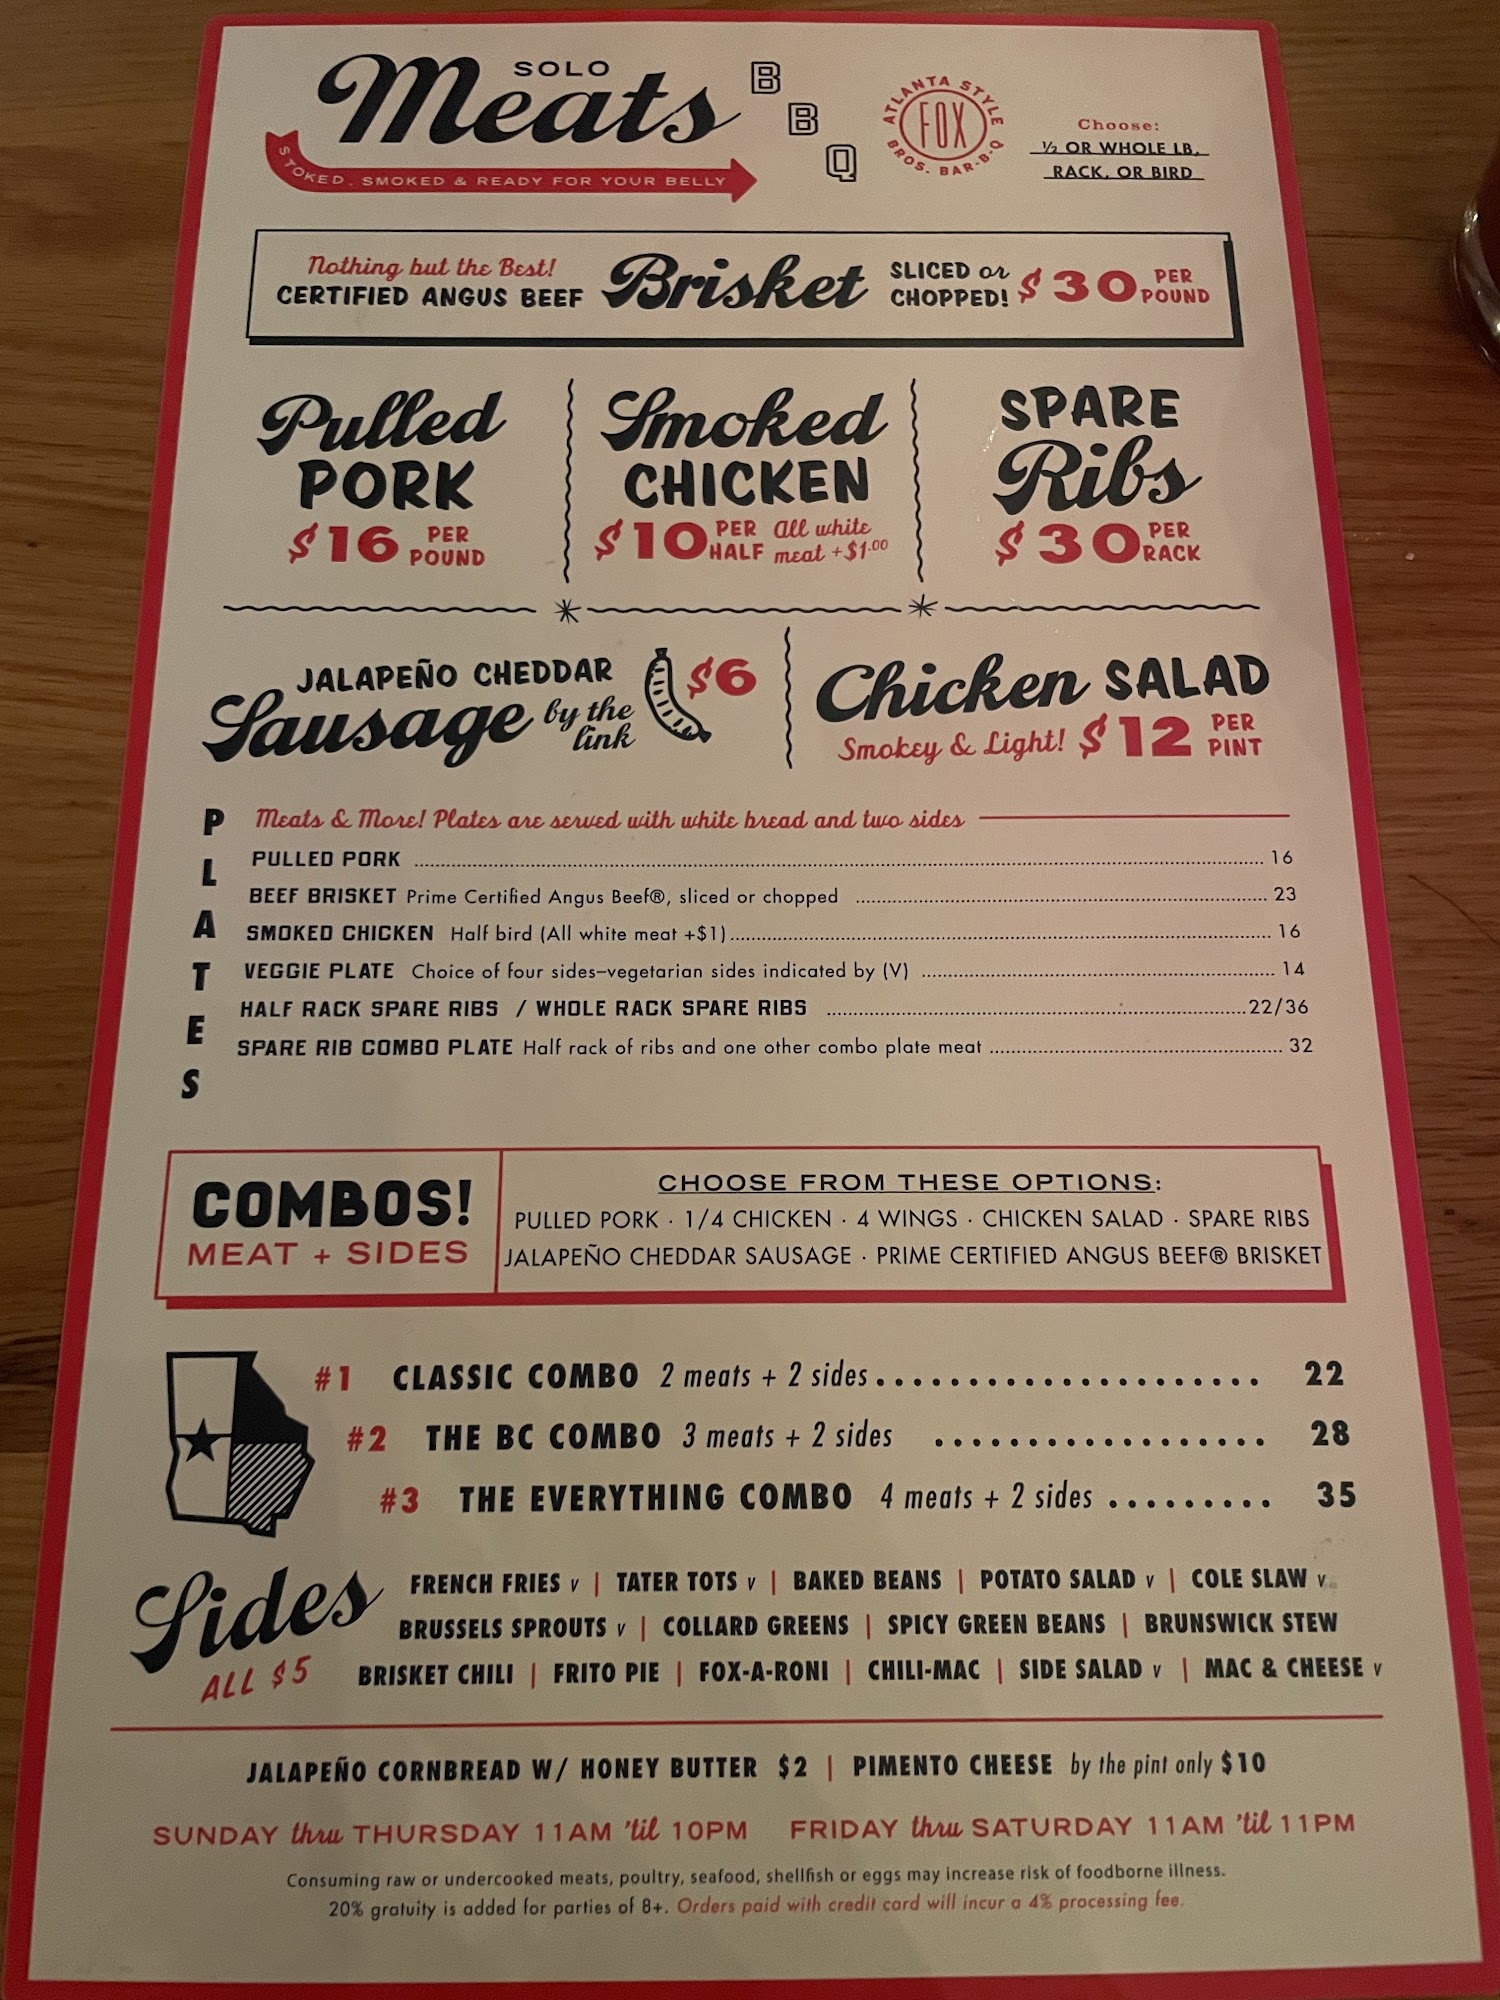 SOLO
Meats
STOKED, SMOKED & READY FOR YOUR BELLY
BBQ
ATLANTA STYLE
FOX
BROS. BAR-B-Q
Choose:
½ OR WHOLE LB,
RACK, OR BIRD
Nothing but the Best!
CERTIFIED ANGUS BEEF
Brisket
SLICED or
CHOPPED!
$30 PER POUND
Pulled
PORK
$16 PER POUND
Smoked
CHICKEN
$10 PER HALF
All white
meat +$1.00
SPARE
Ribs
$30 PER RACK
JALAPEÑO CHEDDAR
Sausage by the link
$6
Chicken SALAD
Smokey & Light! $12 PER PINT
PLATES
Meats & More! Plates are served with white bread and two sides
PULLED PORK 16
BEEF BRISKET Prime Certified Angus Beef®, sliced or chopped 23
SMOKED CHICKEN Half bird (All white meat +$1) 16
VEGGIE PLATE Choice of four sides–vegetarian sides indicated by (V) 14
HALF RACK SPARE RIBS / WHOLE RACK SPARE RIBS 22/36
SPARE RIB COMBO PLATE Half rack of ribs and one other combo plate meat 32
COMBOS!
MEAT + SIDES
CHOOSE FROM THESE OPTIONS:
PULLED PORK · 1/4 CHICKEN · 4 WINGS · CHICKEN SALAD · SPARE RIBS
JALAPEÑO CHEDDAR SAUSAGE · PRIME CERTIFIED ANGUS BEEF® BRISKET
#1 CLASSIC COMBO 2 meats + 2 sides 22
#2 THE BC COMBO 3 meats + 2 sides 28
#3 THE EVERYTHING COMBO 4 meats + 2 sides 35
Sides
ALL $5
FRENCH FRIES v | TATER TOTS v | BAKED BEANS | POTATO SALAD v | COLE SLAW v
BRUSSELS SPROUTS v | COLLARD GREENS | SPICY GREEN BEANS | BRUNSWICK STEW
BRISKET CHILI | FRITO PIE | FOX-A-RONI | CHILI-MAC | SIDE SALAD v | MAC & CHEESE v
JALAPEÑO CORNBREAD W/ HONEY BUTTER $2 | PIMENTO CHEESE by the pint only $10
SUNDAY thru THURSDAY 11AM 'til 10PM FRIDAY thru SATURDAY 11AM 'til 11PM
Consuming raw or undercooked meats, poultry, seafood, shellfish or eggs may increase risk of foodborne illness.
20% gratuity is added for parties of 8+. Orders paid with credit card will incur a 4% processing fee.